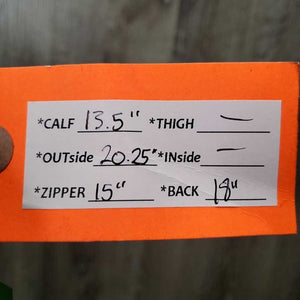 *CALF 13.5" *THIGH —
*OUTside 20.25" *Inside —
*ZIPPER 15" *BACK 18"